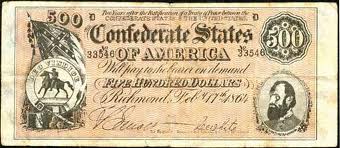 Two Years after the Ratification of a Treaty of Peace between the
CONFEDERATE STATES & THE UNITED STATES,
500 D Confederate States D 500
33546 OF AMERICA 33546
Will pay to the bearer on demand
FIVE HUNDRED DOLLARS
Richmond, Feb. 17th 1864